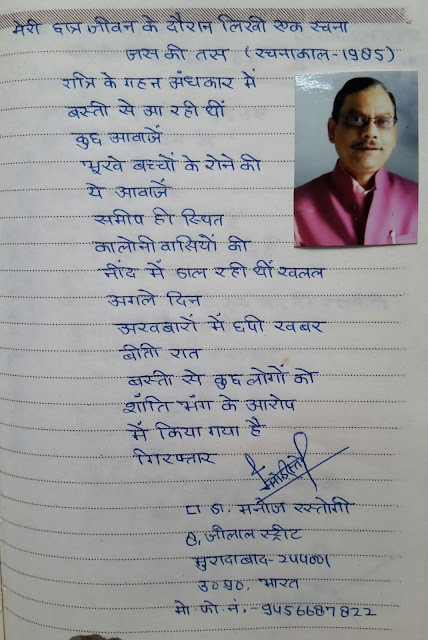 मेरी छात्र जीवन के दौरान लिखी एक रचना
जस की तस (रचनाकाल-1985)
रात्रि के गहन अंधकार में
बस्ती से आ रही थीं
कुछ आवाजें
भूखे बच्चों के रोने की
ये आवाजें
समीप ही स्थित
कालोनी वासियों की
नींद में डाल रही थीं खलल
अगले दिन
अखबारों में छपी खबर
बीती रात
बस्ती से कुछ लोगों को
शांति भंग के आरोप
में किया गया है
गिरफ्तार
डा. मनोज रस्तोगी
8, जीलाल स्ट्रीट
मुरादाबाद-244001
उ०प्र०. भारत
मो. फो. नं.-9456687822